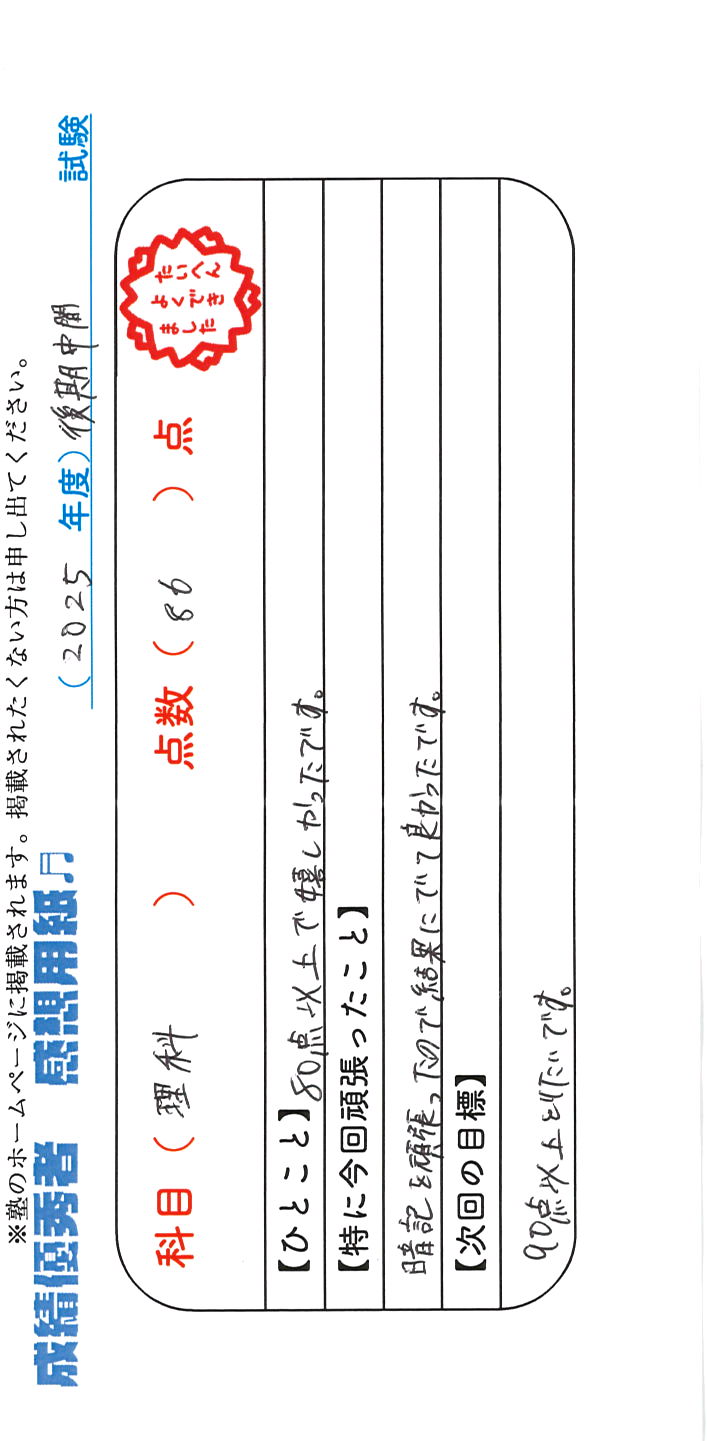 ※塾のホームページに掲載されます。掲載されたくない方は申し出てください。
成績優秀者 感想用紙♬
(2025 年度) 後期中間 試験
科目 ( 理科 ) 点数 ( 86 ) 点
たいへん
よくでき
ました
【ひとこと】80点以上で嬉しかったです。
【特に今回頑張ったこと】
暗記を頑張ったので結果にでて良かったです。
【次回の目標】
90点以上とりたいです。